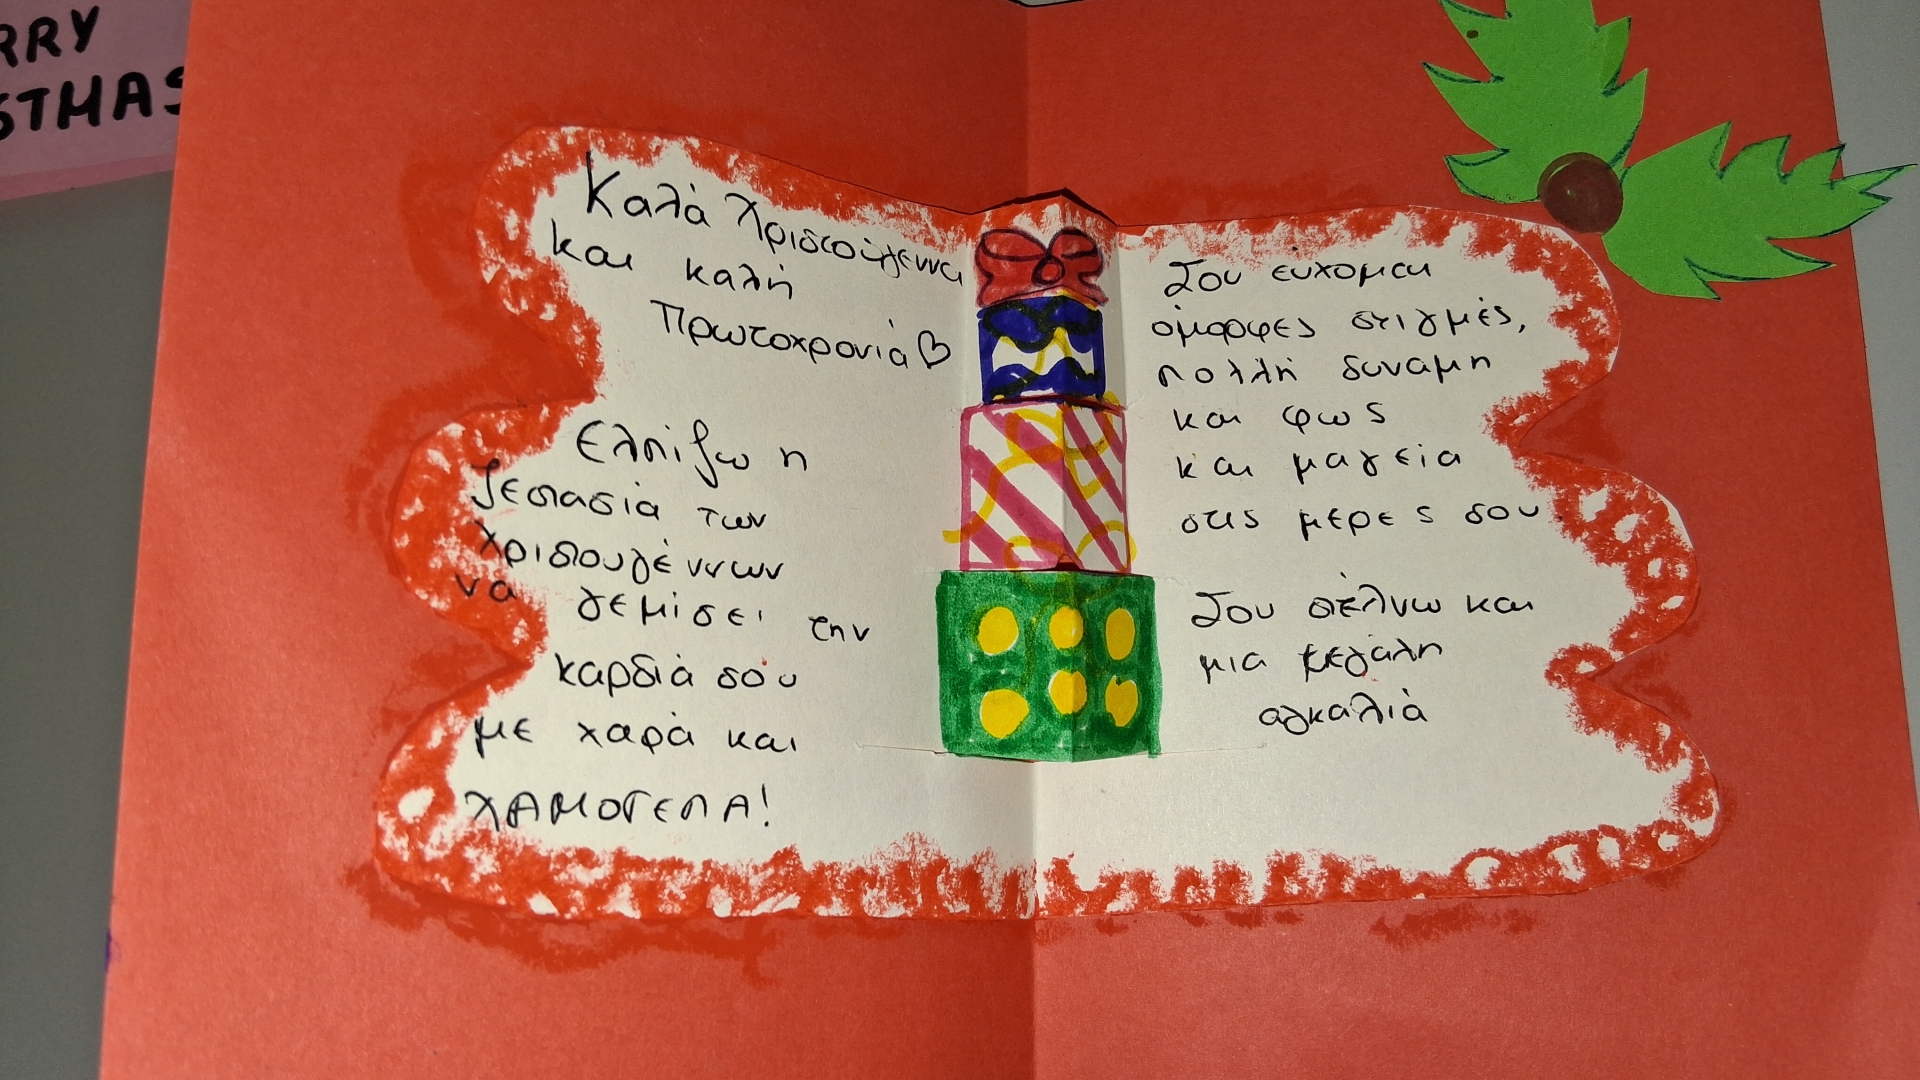 RRY
STMAS
Καλά Χριστούγεννα
και καλή
Πρωτοχρονιά♡
Ελπίζω η
ζεστασιά των
Χριστουγέννων
να γεμίσει την
καρδιά σου
με χαρά και
ΧΑΜΟΓΕΛΑ!
Σου εύχομαι
όμορφες στιγμές,
πολλή δύναμη
και φως
και μαγεία
στις μέρες σου.
Σου στέλνω και
μια μεγάλη
αγκαλιά